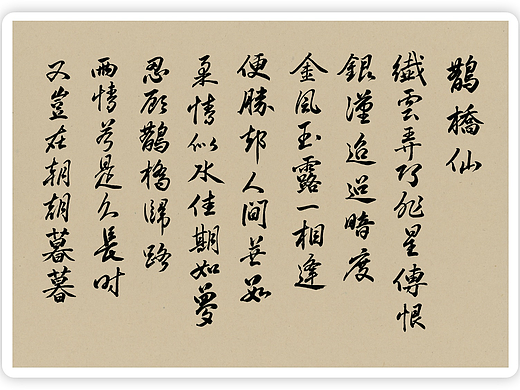 鵲橋仙
纖雲弄巧飛星傳恨
銀漢迢迢暗度
金風玉露一相逢
便勝卻人間無數
柔情似水佳期如夢
忍顧鵲橋歸路
兩情若是久長時
又豈在朝朝暮暮